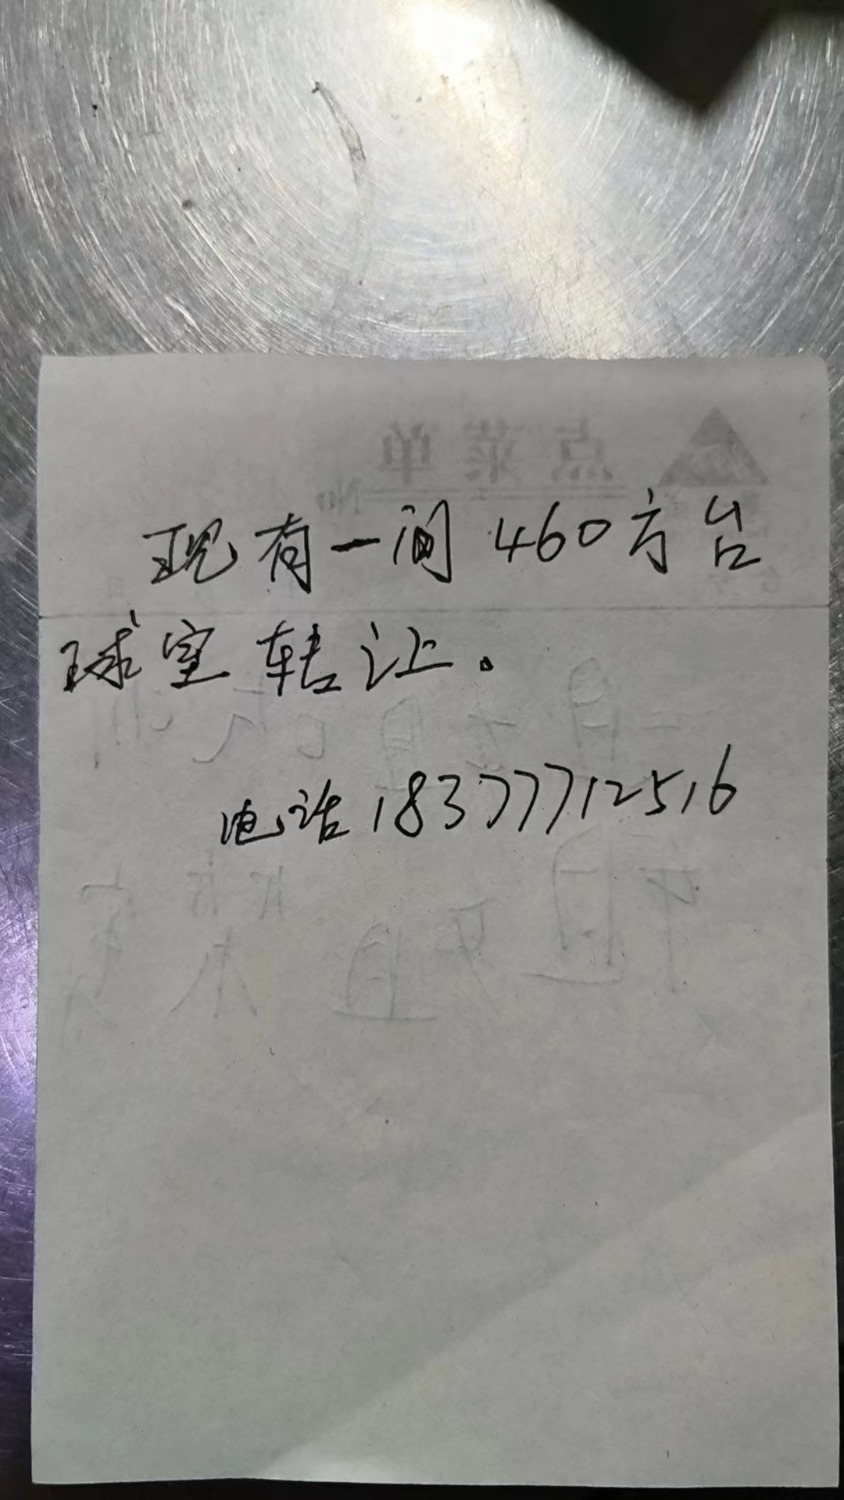 点菜单
No
现有一间460方台
球室转让。
电话18377712516